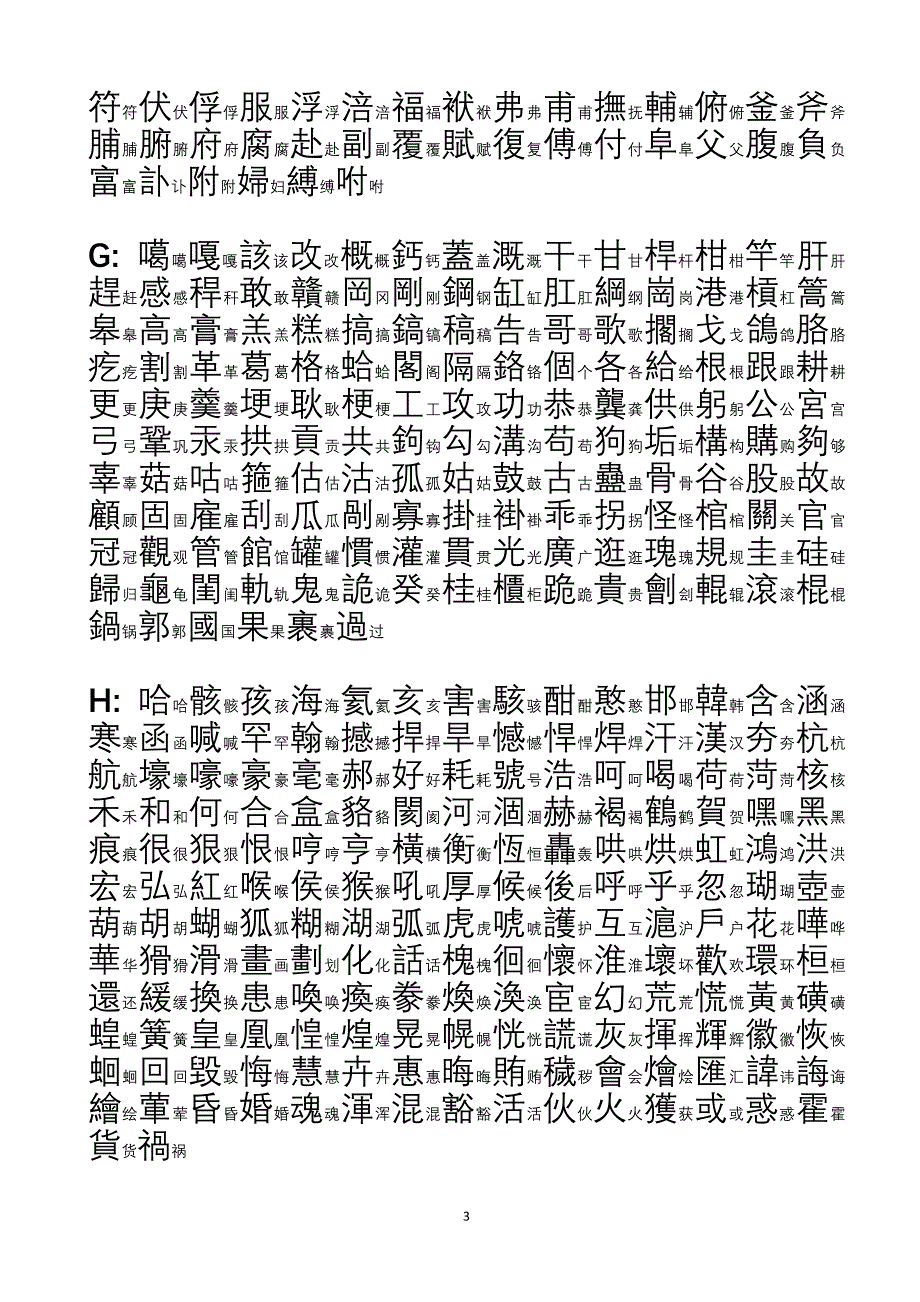 符符伏伏俘俘服服浮浮涪涪福福袱袱弗弗甫甫撫抚輔辅俯俯釜釜斧斧
脯脯腑腑府府腐腐赴赴副副覆覆賦赋復复傅傅付付阜阜父父腹腹負负
富富訃讣附附婦妇縛缚咐咐
G: 噶噶嘎嘎該该改改概概鈣钙蓋盖溉溉干干甘甘桿杆柑柑竿竿肝肝
趕赶感感稈秆敢敢贛赣岡冈剛刚鋼钢缸缸肛肛綱纲崗岗港港槓杠篙篙
皋皋高高膏膏羔羔糕糕搞搞鎬镐稿稿告告哥哥歌歌擱搁戈戈鴿鸽胳胳
疙疙割割革革葛葛格格蛤蛤閣阁隔隔鉻铬個个各各給给根根跟跟耕耕
更更庚庚羹羹埂埂耿耿梗梗工工攻攻功功恭恭龔龚供供躬躬公公宮宫
弓弓鞏巩汞汞拱拱貢贡共共鉤钩勾勾溝沟苟苟狗狗垢垢構构購购夠够
辜辜菇菇咕咕箍箍估估沽沽孤孤姑姑鼓鼓古古蠱蛊骨骨谷谷股股故故
顧顾固固雇雇刮刮瓜瓜剮剐寡寡掛挂褂褂乖乖拐拐怪怪棺棺關关官官
冠冠觀观管管館馆罐罐慣惯灌灌貫贯光光廣广逛逛瑰瑰規规圭圭硅硅
歸归龜龟閨闺軌轨鬼鬼詭诡癸癸桂桂櫃柜跪跪貴贵劊刽輥辊滾滚棍棍
鍋锅郭郭國国果果裹裹過过
H: 哈哈骸骸孩孩海海氦氦亥亥害害駭骇酣酣憨憨邯邯韓韩含含涵涵
寒寒函函喊喊罕罕翰翰撼撼捍捍旱旱憾憾悍悍焊焊汗汗漢汉夯夯杭杭
航航壕壕嚎嚎豪豪毫毫郝郝好好耗耗號号浩浩呵呵喝喝荷荷菏菏核核
禾禾和和何何合合盒盒貉貉閡阂河河涸涸赫赫褐褐鶴鹤賀贺嘿嘿黑黑
痕痕很很狠狠恨恨哼哼亨亨橫横衡衡恆恒轟轰哄哄烘烘虹虹鴻鸿洪洪
宏宏弘弘紅红喉喉侯侯猴猴吼吼厚厚候候後后呼呼乎乎忽忽瑚瑚壺壶
葫葫胡胡蝴蝴狐狐糊糊湖湖弧弧虎虎唬唬護护互互滬沪戶户花花嘩哗
華华猾猾滑滑畫画劃划化化話话槐槐徊徊懷怀淮淮壞坏歡欢環环桓桓
還还緩缓換换患患喚唤瘓痪豢豢煥焕渙涣宦宦幻幻荒荒慌慌黃黄磺磺
蝗蝗簧簧皇皇凰凰惶惶煌煌晃晃幌幌恍恍謊谎灰灰揮挥輝辉徽徽恢恢
蛔蛔回回毀毁悔悔慧慧卉卉惠惠晦晦賄贿穢秽會会燴烩匯汇諱讳誨诲
繪绘葷荤昏昏婚婚魂魂渾浑混混豁豁活活伙伙火火獲获或或惑惑霍霍
貨货禍祸
3